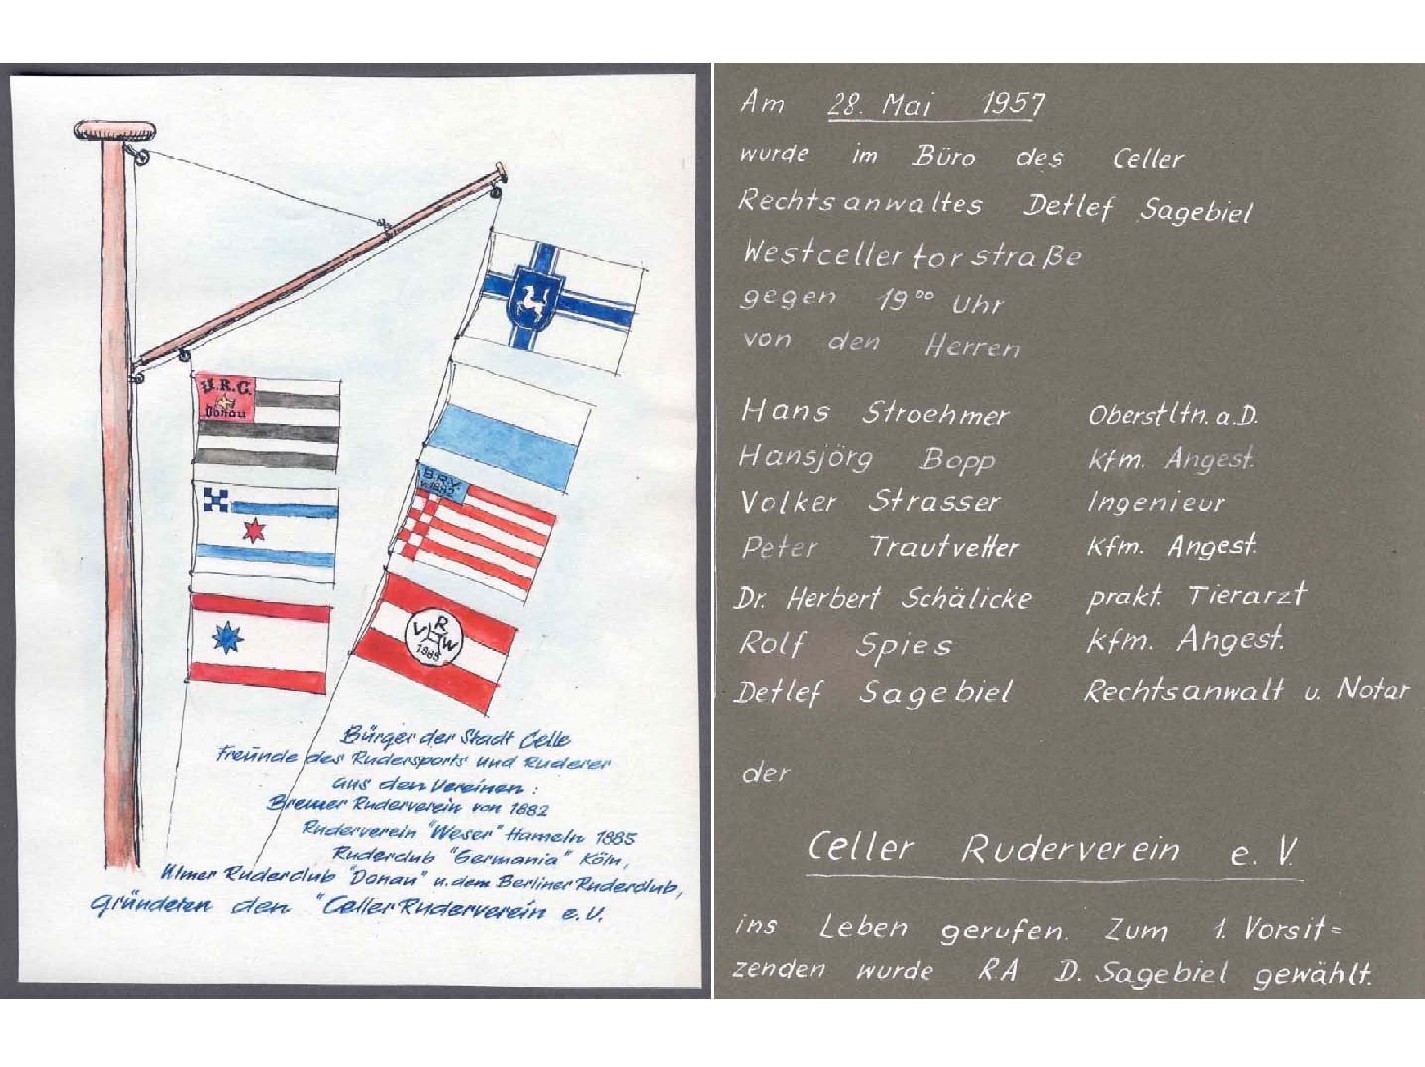 U.R.C.
Donau
B.R.V.
v. 1882
R
V W
1885
Bürger der Stadt Celle
Freunde des Rudersports und Ruderer
aus den Vereinen:
Bremer Ruderverein von 1882
Ruderverein "Weser" Hameln 1885
Ruderclub "Germania" Köln,
Ulmer Ruderclub "Donau" u. dem Berliner Ruderclub,
gründeten den "Celler Ruderverein e. V.
Am 28. Mai 1957
wurde im Büro des Celler
Rechtsanwaltes Detlef Sagebiel
Westcellertorstraße
gegen 19⁰⁰ Uhr
von den Herren
Hans Stroehmer Oberstltn. a. D.
Hansjörg Bopp Kfm. Angest.
Volker Strasser Ingenieur
Peter Trautvetter Kfm. Angest.
Dr. Herbert Schälicke prakt. Tierarzt
Rolf Spies Kfm. Angest.
Detlef Sagebiel Rechtsanwalt u. Notar
der
Celler Ruderverein e. V.
ins Leben gerufen. Zum 1. Vorsit=
zenden wurde RA D. Sagebiel gewählt.